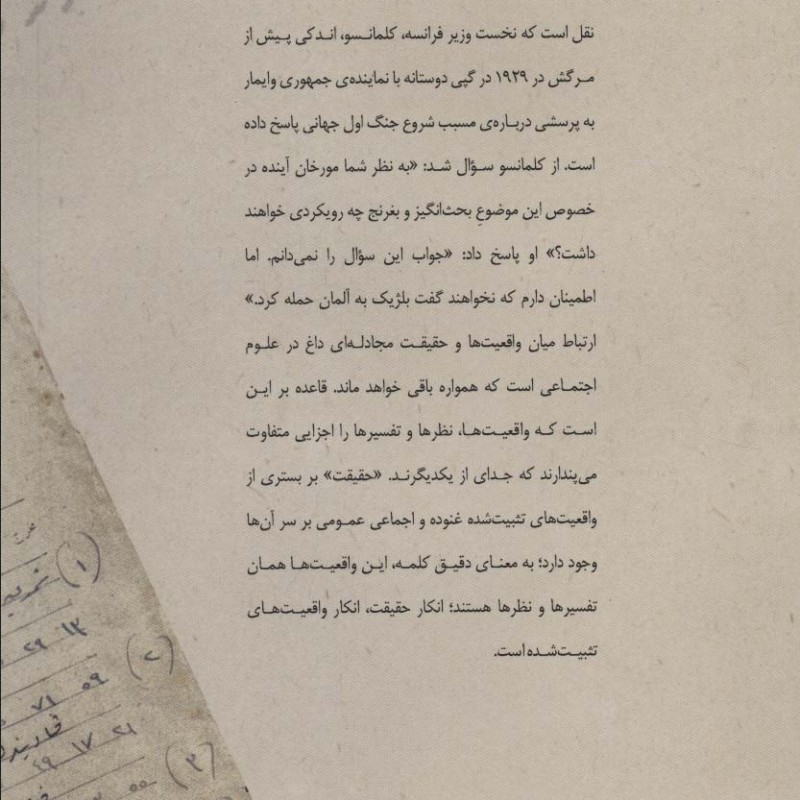 نقل است که نخست وزیر فرانسه، کلمانسو، اندکی پیش از
مرگش در ۱۹۲۹ در گپی دوستانه با نماینده‌ی جمهوری وایمار
به پرسشی درباره‌ی مسبب شروع جنگ اول جهانی پاسخ داده
است. از کلمانسو سؤال شد: «به نظر شما مورخان آینده در
خصوص این موضوعِ بحث‌انگیز و بغرنج چه رویکردی خواهند
داشت؟» او پاسخ داد: «جواب این سؤال را نمی‌دانم. اما
اطمینان دارم که نخواهند گفت بلژیک به آلمان حمله کرد.»
ارتباط میان واقعیت‌ها و حقیقت مجادله‌ای داغ در علوم
اجتماعی است که همواره باقی خواهد ماند. قاعده بر این
است که واقعیت‌ها، نظرها و تفسیرها را اجزایی متفاوت
می‌پندارند که جدای از یکدیگرند. «حقیقت» بر بستری از
واقعیت‌های تثبیت‌شده غنوده و اجماعی عمومی بر سر آن‌ها
وجود دارد؛ به معنای دقیق کلمه، این واقعیت‌ها همان
تفسیرها و نظرها هستند؛ انکار حقیقت، انکار واقعیت‌های
تثبیت‌شده است.
(۱)
۲۹ ۱۳
(۲)
۷۱ ۵۹
۱۹ ۱۷ ۲۱
(۳)
۵۵